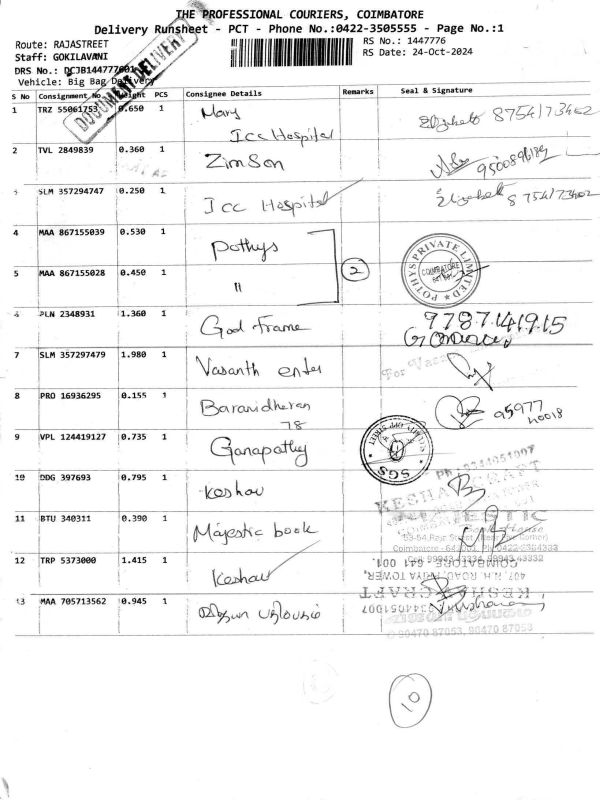 THE PROFESSIONAL COURIERS, COIMBATORE
Delivery Runsheet - PCT - Phone No.:0422-3505555 - Page No.:1
Route: RAJASTREET
RS No.: 1447776
Staff: GOKILAVANI
RS Date: 24-Oct-2024
DRS No.:
Vehicle: Big Bag Delivery
DOCUMENT DELIVERY
S No Consignment No Weight PCS Consignee Details Remarks Seal & Signature
1 TRZ 55061753 0.650 1 Mary
Icc Hospital
Elizabeth 8754173402
2 TVL 2849839 0.360 1 Zimson
3 SLM 357294747 0.250 1 Icc Hospital Elizabeth 8754173402
4 MAA 867155039 0.530 1 Pothys
2
POTHYS PRIVATE LIMITED
COIMBATORE
5 MAA 867155028 0.450 1 "
6 PLN 2348931 1.360 1 God Frame 9787141915
7 SLM 357297479 1.980 1 Vasanth enter
For Vasa
8 PRO 16936295 0.155 1 Baranidharan
78
95977
40018
9 VPL 124419127 0.735 1 Ganapathy
SGS
10 DDG 397693 0.795 1 Keshav
11 BTU 340311 0.390 1 Majestic book
12 TRP 5373000 1.415 1 Keshav
COIMBATORE - 641 001.
407, N.H. ROAD,
KESHAV CRAFT
13 MAA 705713562 0.945 1
90470 87053, 90470 87053
10